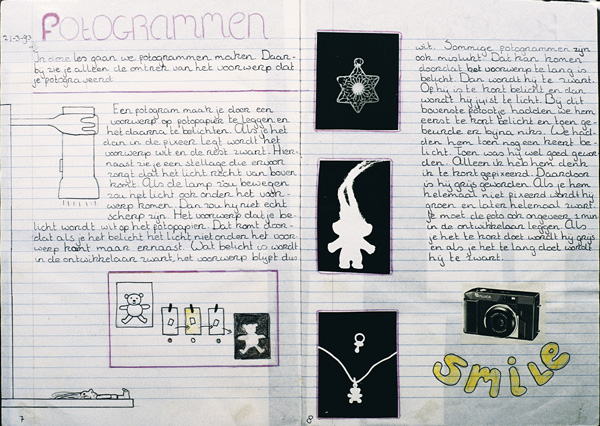 Fotogrammen
In deze les gaan we fotogrammen maken. Daar-
bij zie je alleen de omtrek van het voorwerp dat
je fotografeerd
Een fotogram maak je door een
voorwerp op fotopapier te leggen en
het daarna te belichten. Als je het
dan in de fixeer legt wordt het
voorwerp wit en de rest zwart. Hier-
naast zie je een stellage die ervoor
zorgt dat het licht recht van boven
komt. Als de lamp zou bewegen
zou het licht ook onder het voor-
werp komen. Dan zou hij niet echt
scherp zijn. Het voorwerp dat je be-
licht wordt wit op het fotopapier. Dat komt door-
dat als je het belicht het licht niet onder het voor-
werp komt maar ernaast. Wat belicht is wordt
in de ontwikkelaar zwart, het voorwerp blijft dus
7
8
wit. Sommige fotogrammen zijn
ook mislukt. Dat kan komen
doordat het voorwerp te lang is
belicht. Dan wordt hij te zwart.
Of hij is te kort belicht en dan
wordt hij juist te licht. Bij dit
bovenste fototje hadden we hem
eerst te kort belicht en toen ge-
beurde er bijna niks. We had-
den hem toen nog een keer be-
licht. Toen was hij wel goed gewor-
den. Alleen heb ik hem denk
ik te kort gefixeerd. Daardoor
is hij grijs geworden. Als je hem
helemaal niet fixeerd wordt hij
groen en later helemaal zwart.
Je moet de foto ook ongeveer 2 min
in de ontwikkelaar leggen. Als
je het te kort doet wordt hij grijs
en als je het te lang doet wordt
hij te zwart.
SMILE